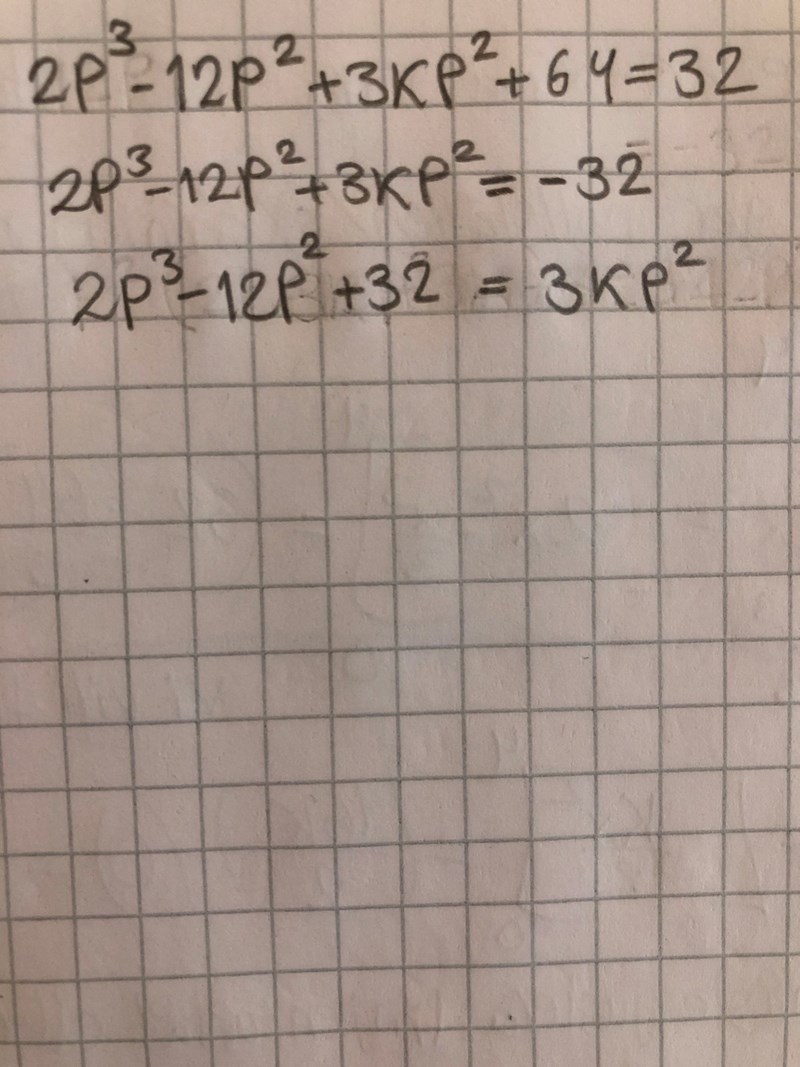 2p³-12p²+3kp²+64=32
2p³-12p²+3kp²=-32
2p³-12p²+32=3kp²